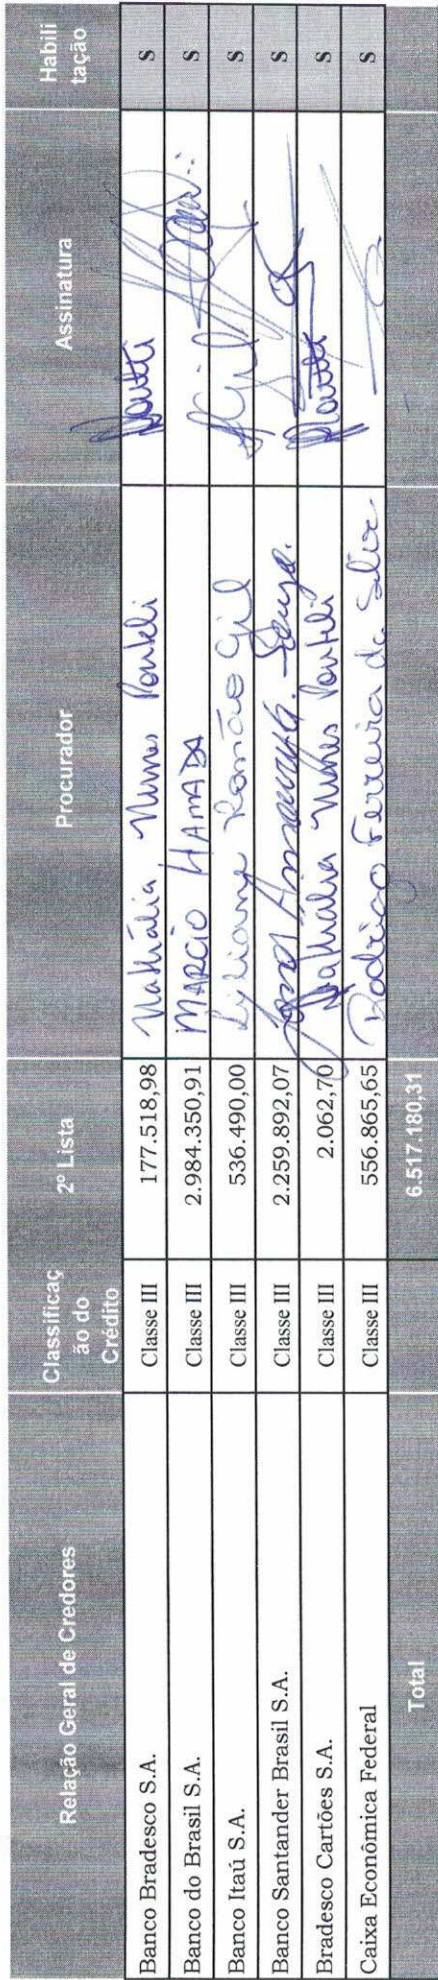 Relação Geral de Credores Classificaç ão do Crédito 2º Lista Procurador Assinatura Habili tação
Banco Bradesco S.A. Classe III 177.518,98 Nathália Nunes Ponteli S
Banco do Brasil S.A. Classe III 2.984.350,91 MARCIO HAMADA S
Banco Itaú S.A. Classe III 536.490,00 Lyliane Romão Gil Gil S
Banco Santander Brasil S.A. Classe III 2.259.892,07 S
Bradesco Cartões S.A. Classe III 2.062,70 Nathália Nunes Ponteli S
Caixa Econômica Federal Classe III 556.865,65 Rodrigo Ferreira da Silva S
Total 6.517.180,31